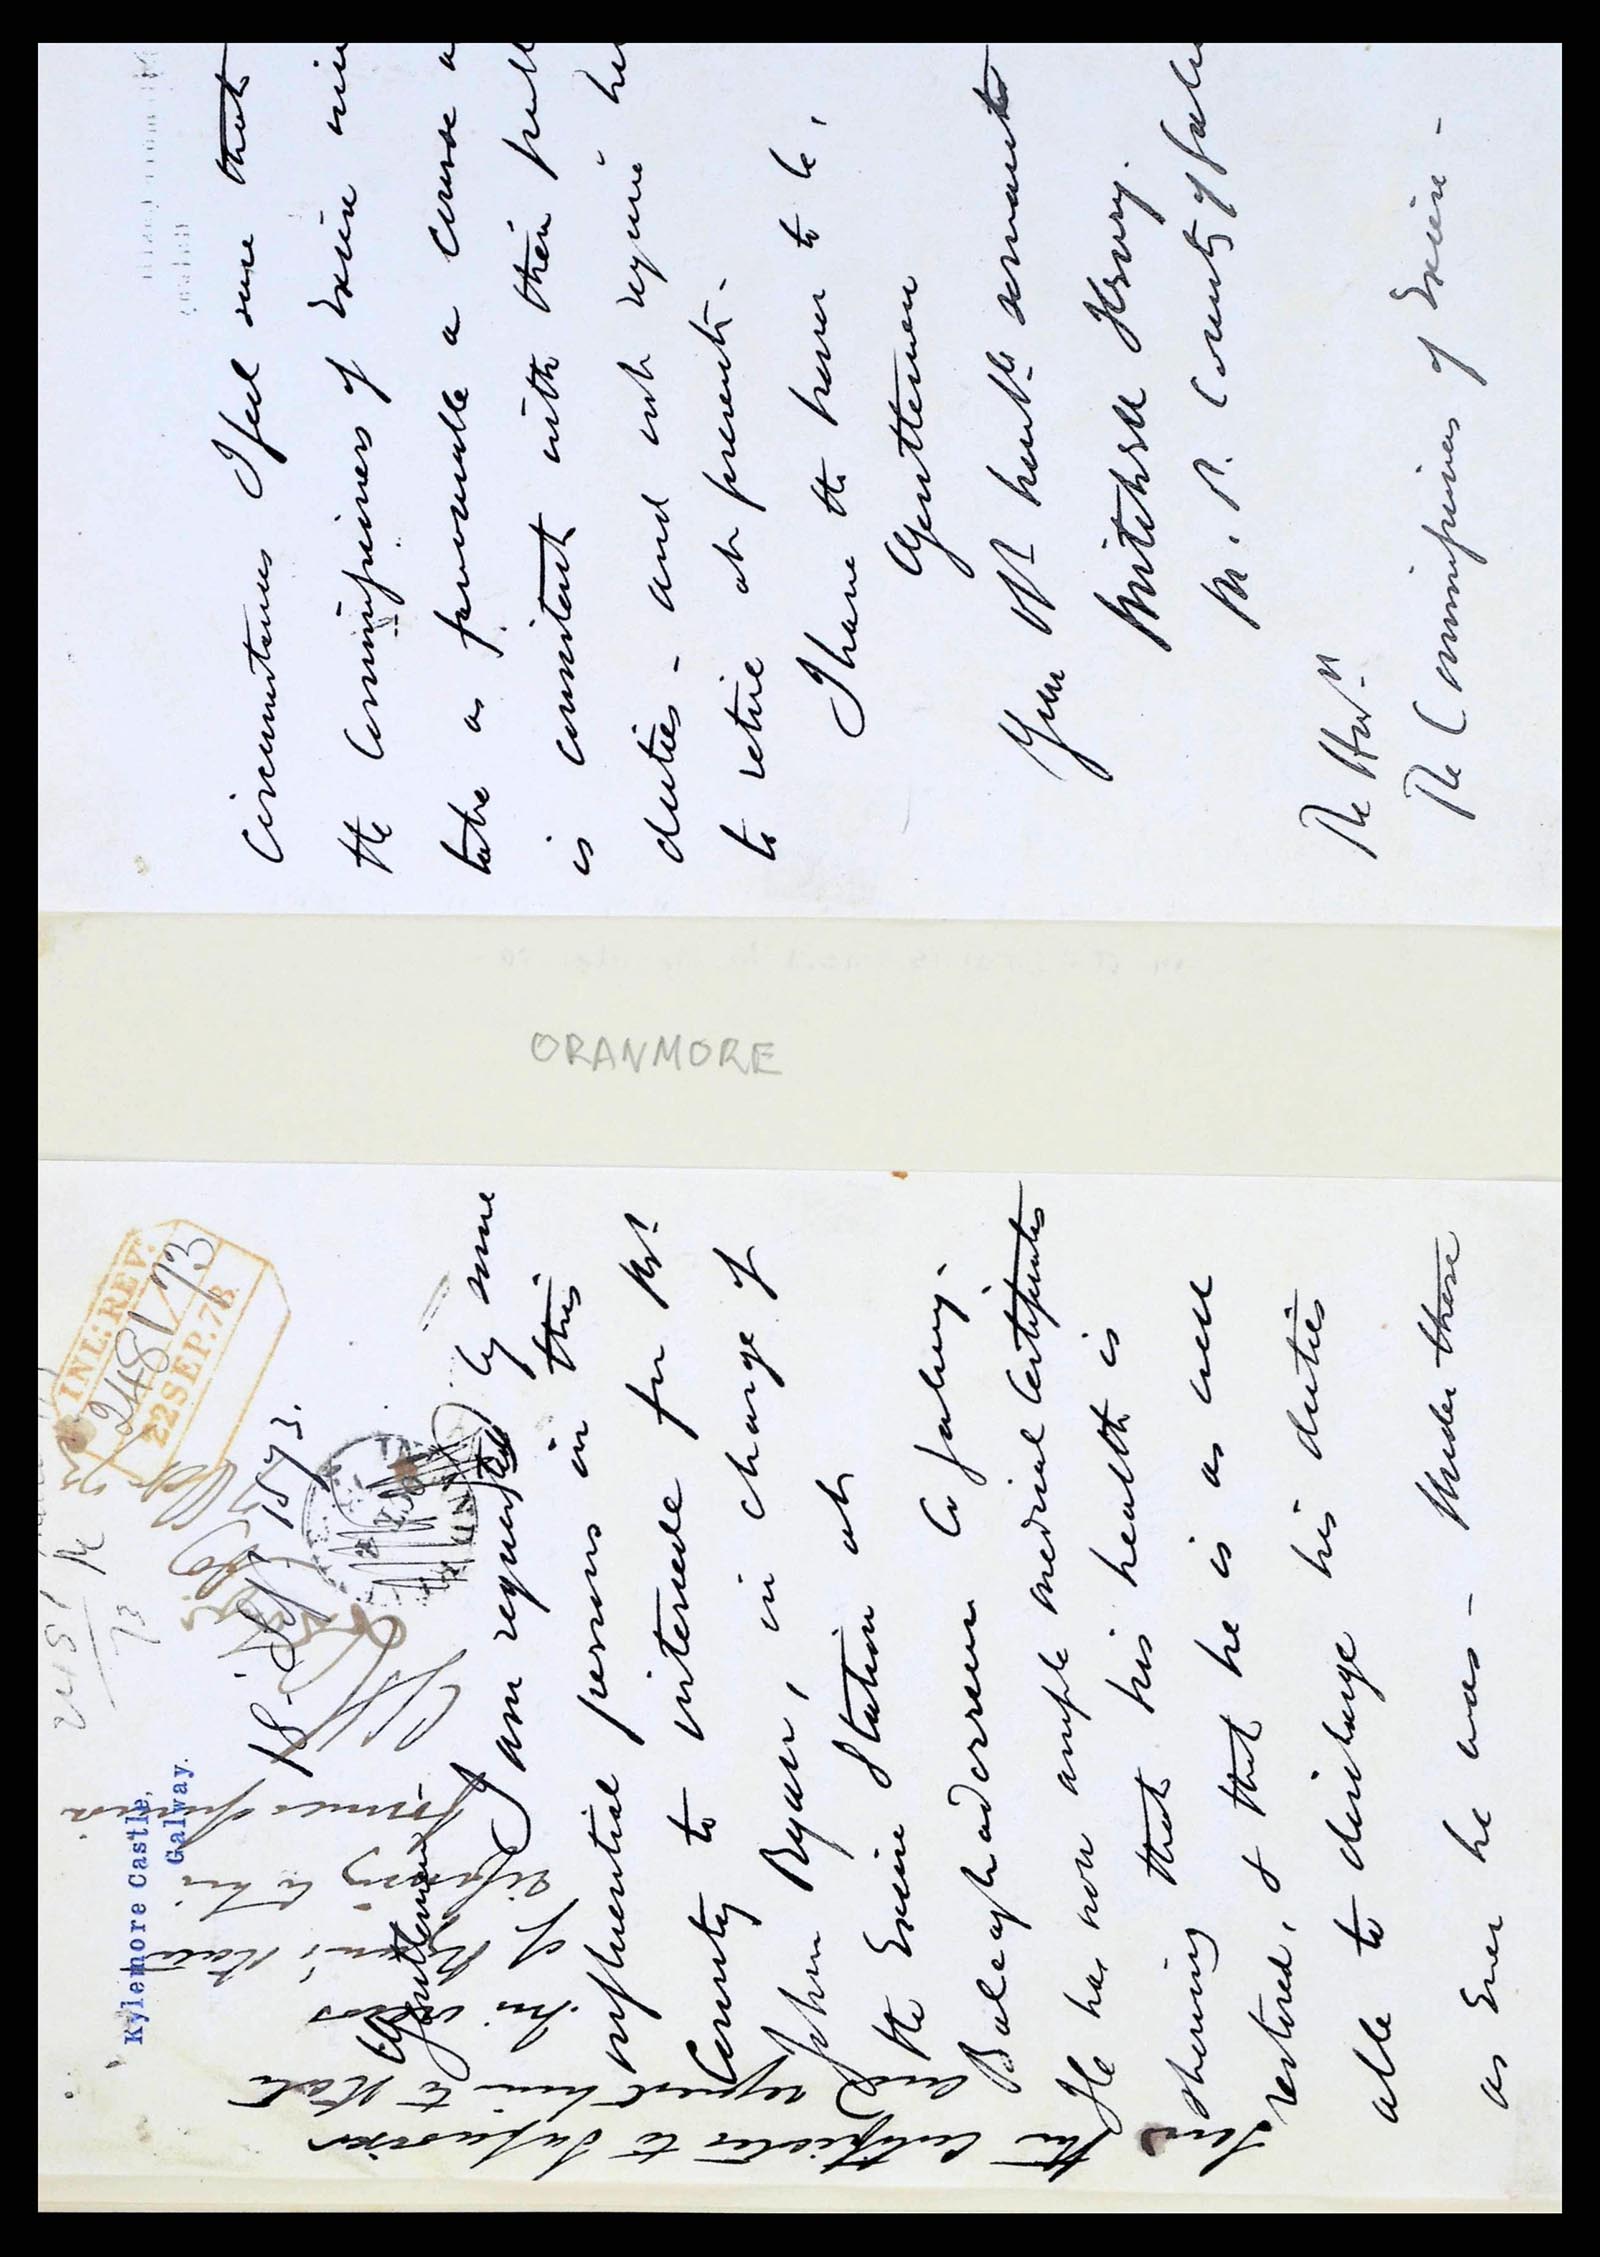 Kylemore Castle,
Galway.
INL: REV:
2481/73
22 SEP. 73
18. Sept 1873.
Gentlemen
I am requested by some
influential persons in this
County to intercede for Mr
John Ryan, in charge of
the Excise Station at
in Co Galway.
He has now ample medical Certificates
shewing that his health is
restored, & that he is as well
able to discharge his duties
as Ever he was - Under these
Send the Certificates to Supervisor
and request him to State
his views
of Ryan's State
ORANMORE
Circumstances I feel sure that
the Commissioners of Excise will
take as favourable a Course as
is consistent with their public
duties - and not require him
to retire at present -
I have the honor to be,
Gentlemen
Your Obt humble servant
Mitchell Henry.
M.P. County Galway
The Honble
The Commissioners of Excise -